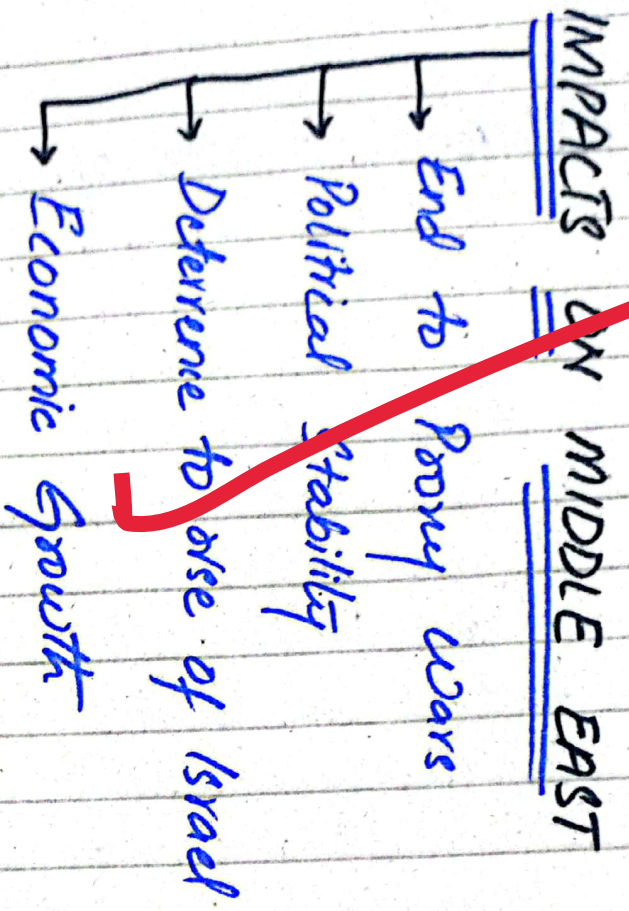 IMPACTS ON MIDDLE EAST
End to Proxy Wars
Political Stability
Deterrence to rise of Israel
Economic Growth